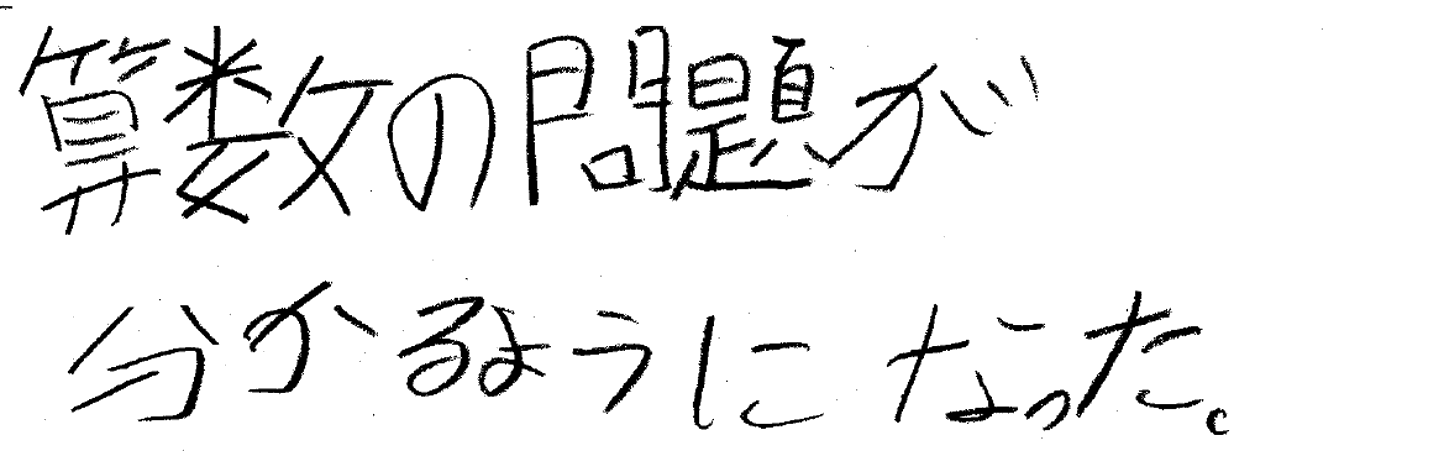 算数の問題が
分かるようになった。